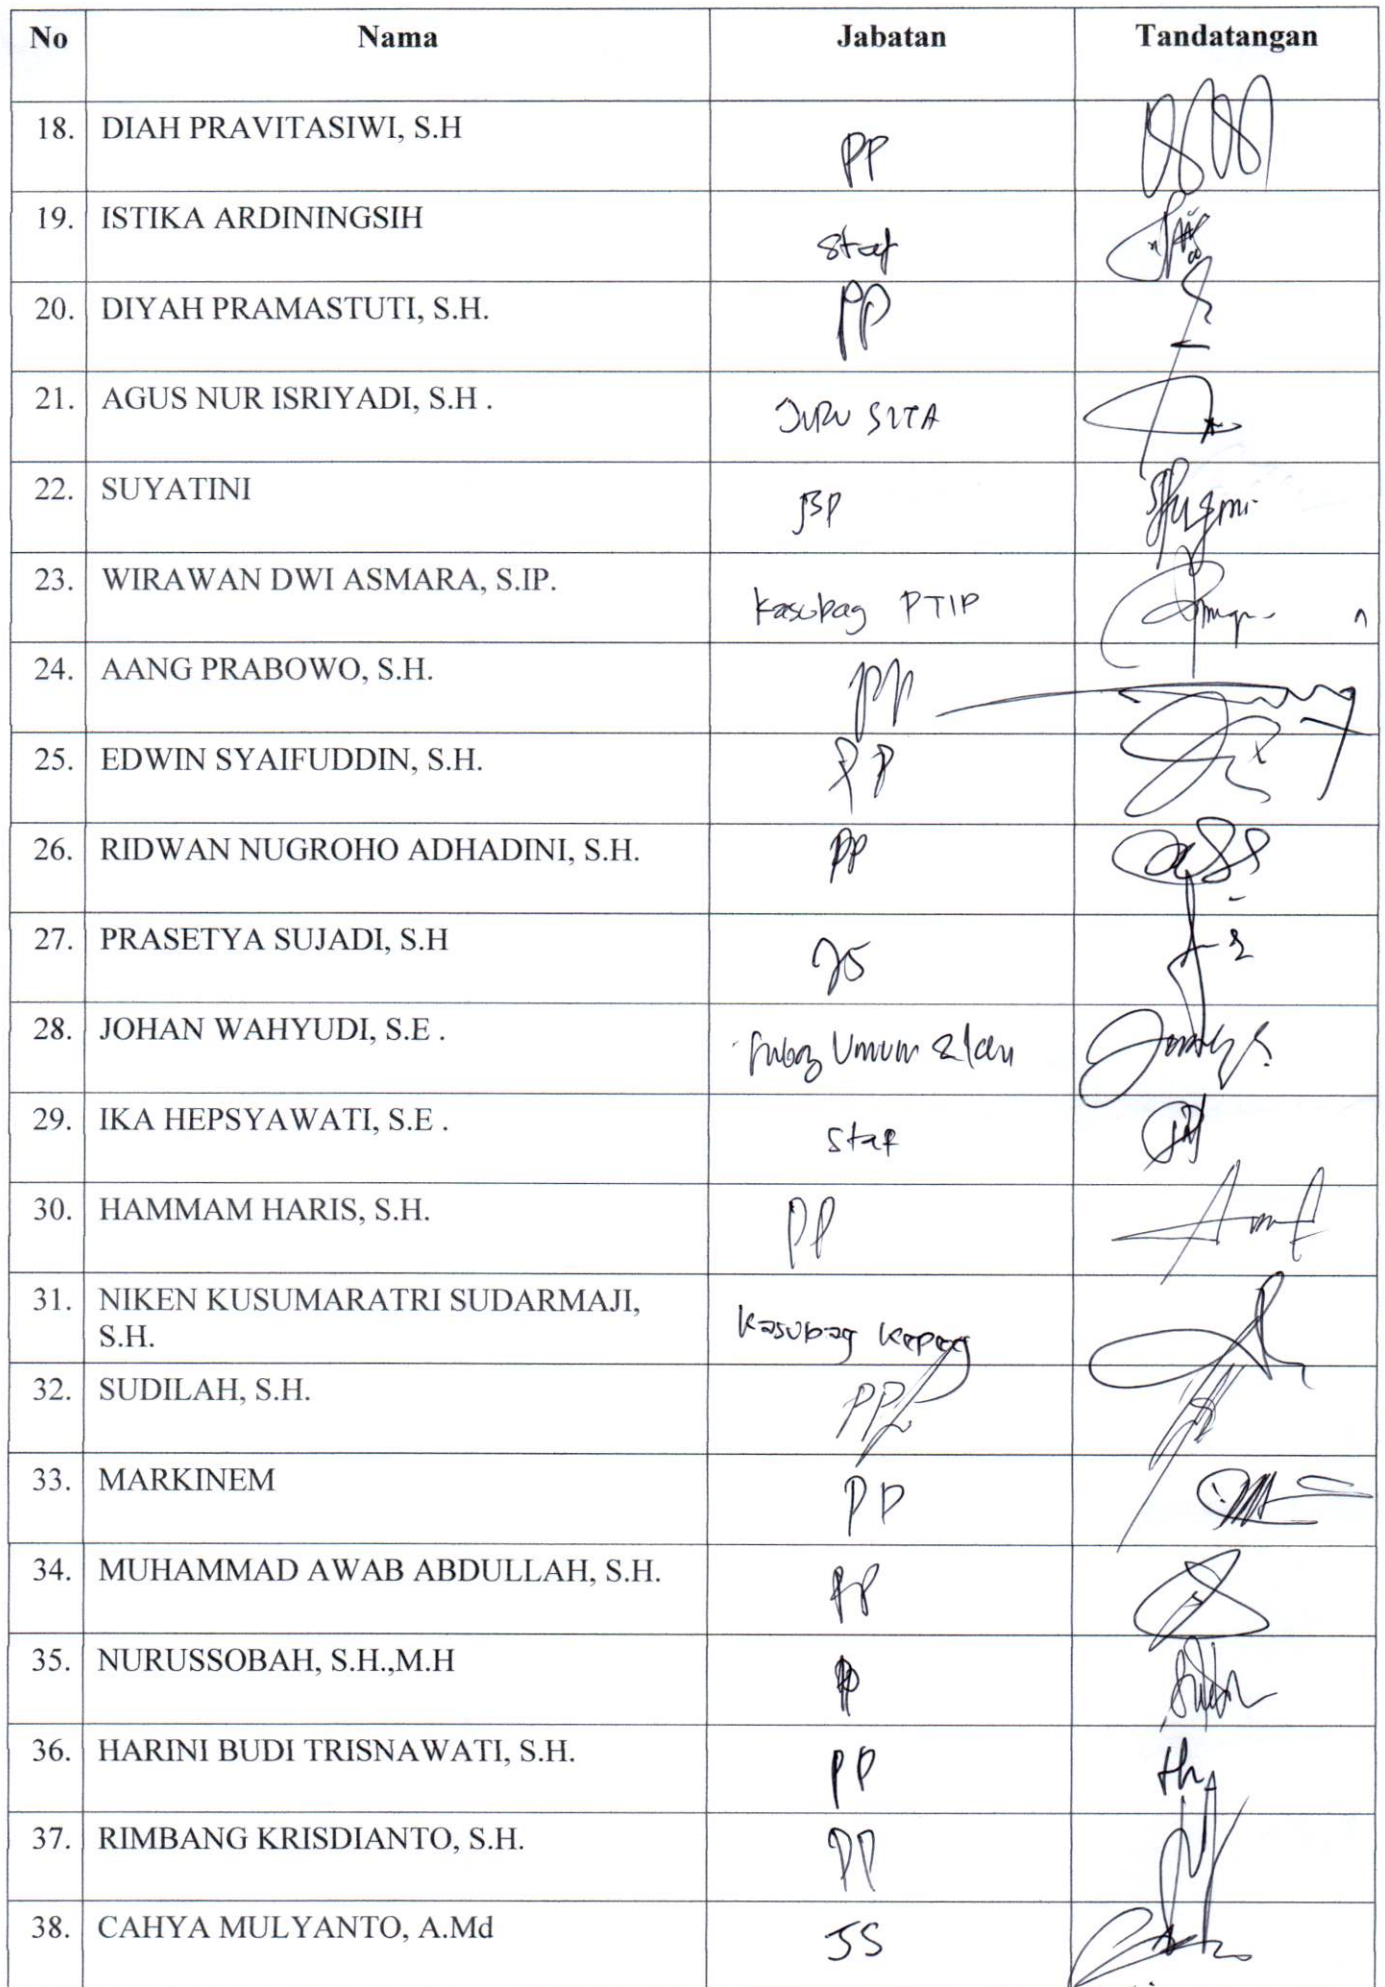 No Nama Jabatan Tandatangan
18. DIAH PRAVITASIWI, S.H PP
19. ISTIKA ARDININGSIH staf
20. DIYAH PRAMASTUTI, S.H. PP
21. AGUS NUR ISRIYADI, S.H . JURU SITA
22. SUYATINI JSP
23. WIRAWAN DWI ASMARA, S.IP. Kasubag PTIP
24. AANG PRABOWO, S.H. PP
25. EDWIN SYAIFUDDIN, S.H. PP
26. RIDWAN NUGROHO ADHADINI, S.H. PP
27. PRASETYA SUJADI, S.H JS
28. JOHAN WAHYUDI, S.E . Umum &
29. IKA HEPSYAWATI, S.E . Staf
30. HAMMAM HARIS, S.H. PP
31. NIKEN KUSUMARATRI SUDARMAJI,
S.H. Kasubag Kepeg
32. SUDILAH, S.H. PP
33. MARKINEM PP
34. MUHAMMAD AWAB ABDULLAH, S.H. PP
35. NURUSSOBAH, S.H.,M.H PP
36. HARINI BUDI TRISNAWATI, S.H. PP
37. RIMBANG KRISDIANTO, S.H. PP
38. CAHYA MULYANTO, A.Md JS